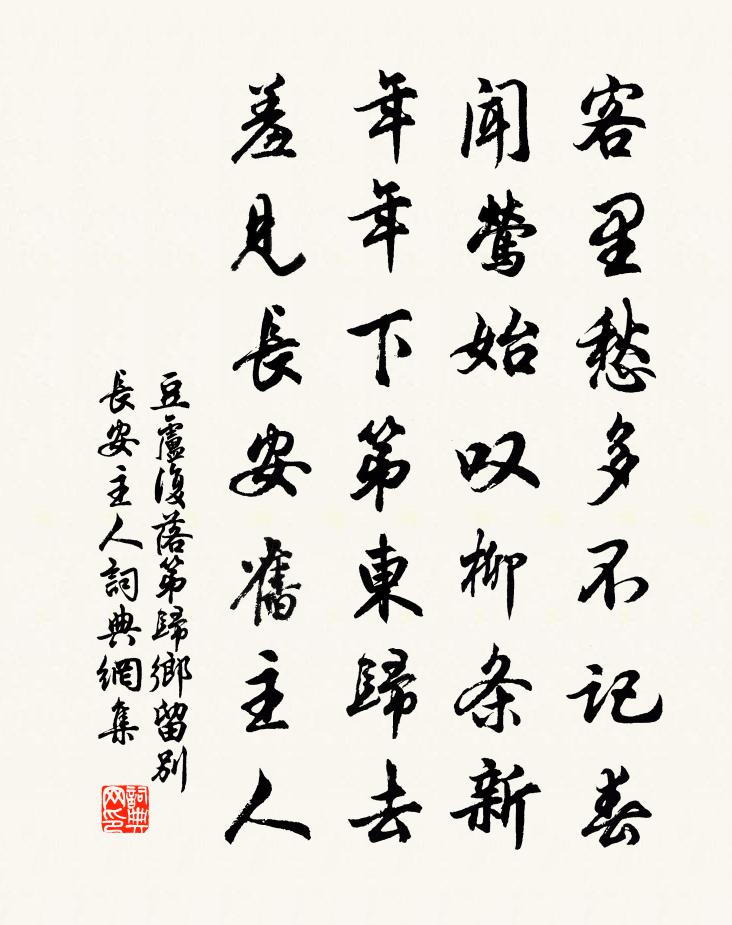 客里愁多不记春
闻莺始叹柳条新
年年下第東歸去
羞見長安舊主人
豆盧復落第歸鄉留别
長安主人詞典網集
詞典网印